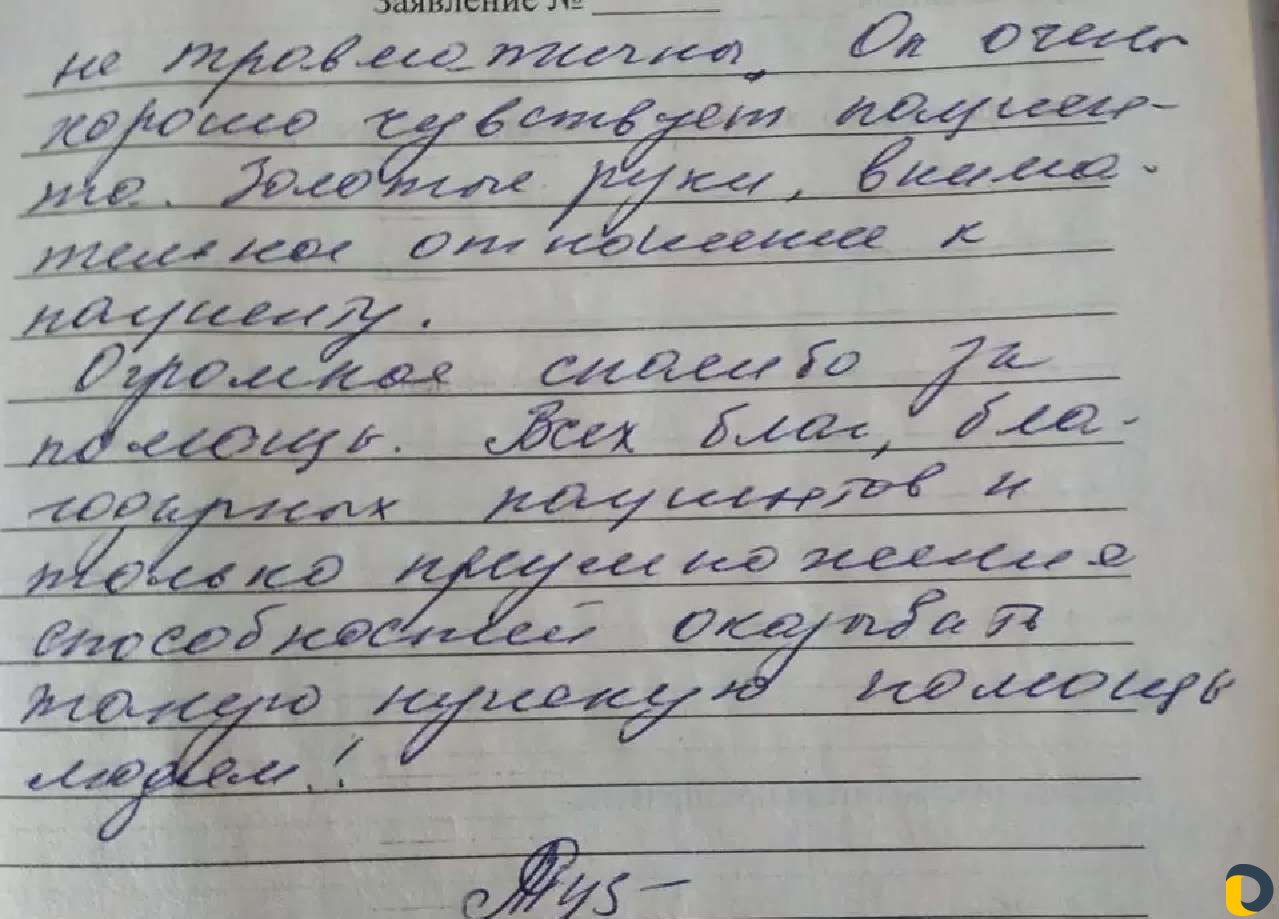 Заявление №
не травматичны. Он очень
хорошо чувствует пациен-
та. Золотые руки, внима-
тельное отношение к
пациенту.
Огромное спасибо за
помощь. Всех благ, бла-
годарных пациентов и
только преумножения
способностей оказывать
такую нужную помощь
людям!